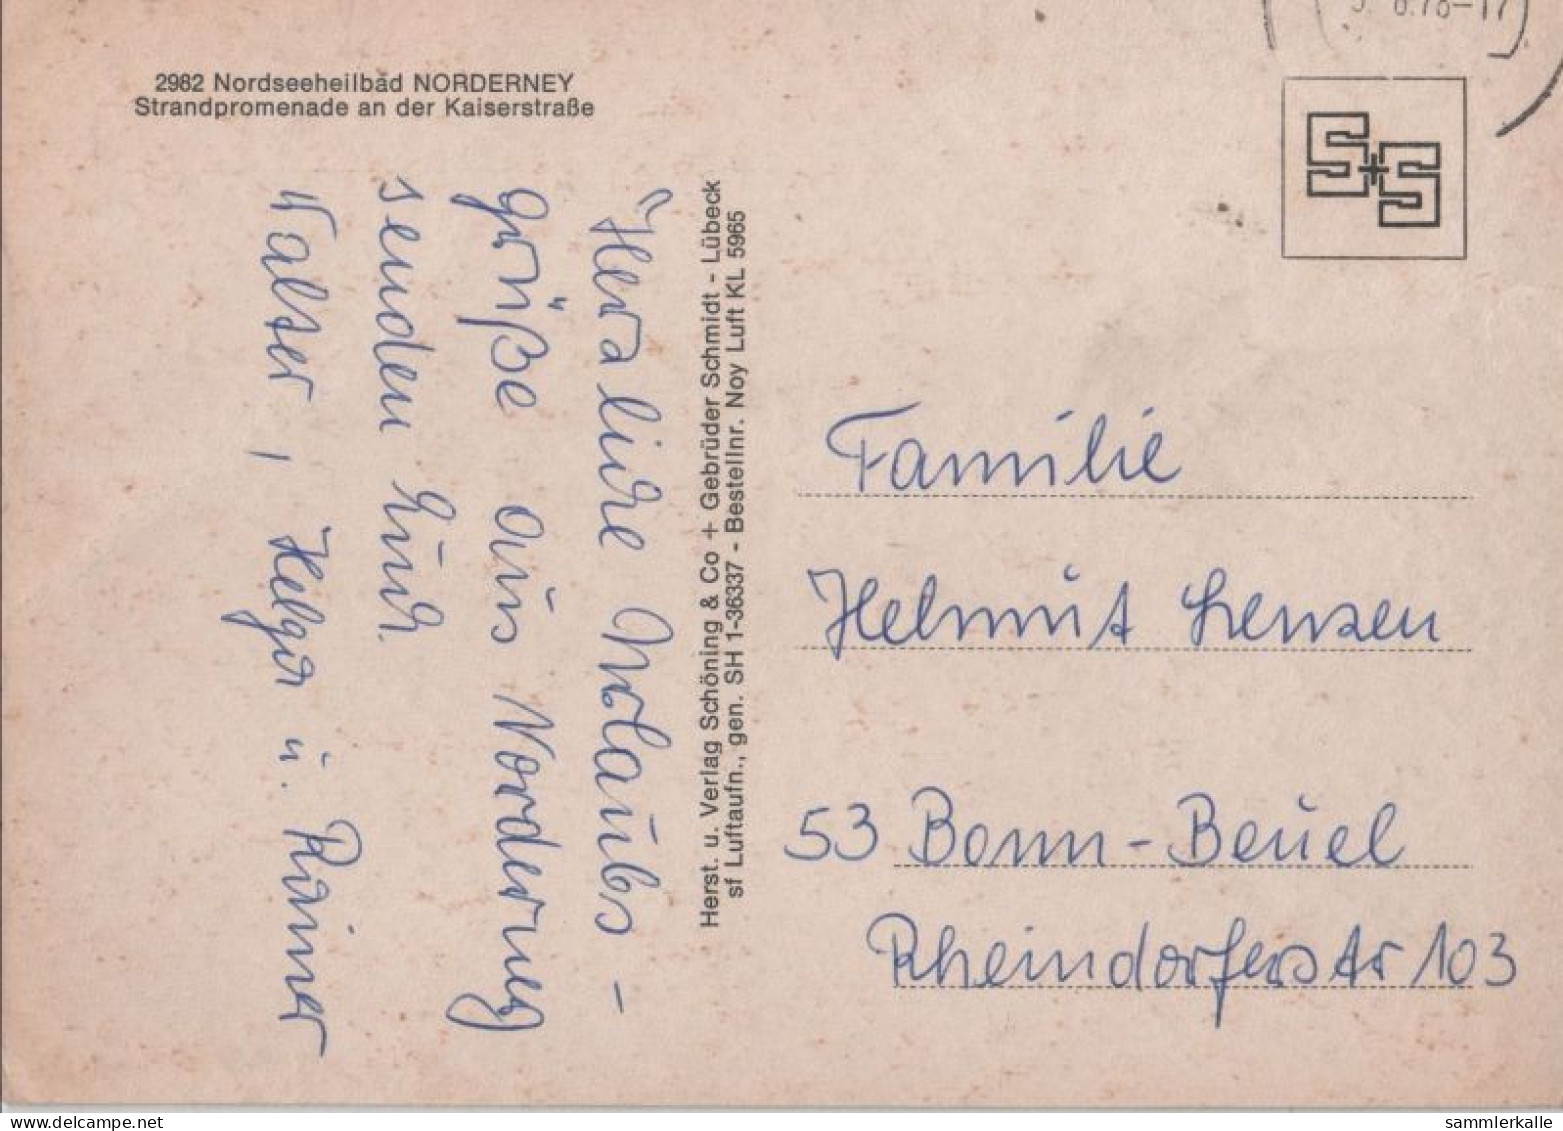 2982 Nordseeheilbad NORDERNEY
Strandpromenade an der Kaiserstraße
Herzliche Urlaubs-
grüße aus Norderney
senden Euch
Walter, Helga u. Rainer
Herst. u. Verlag Schöning & Co + Gebrüder Schmidt - Lübeck
sf Luftaufn., gen. SH 1-36337 - Bestellnr. Noy Luft KL 5965
8.78-17
S+S
Familie
Helmut Lenzen
53 Bonn-Beuel
Rheindorferstr 103
www.delcampe.net
sammlerkalle